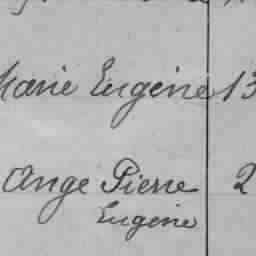 Marie Eugène 13
Ange Pierre 2
Eugène